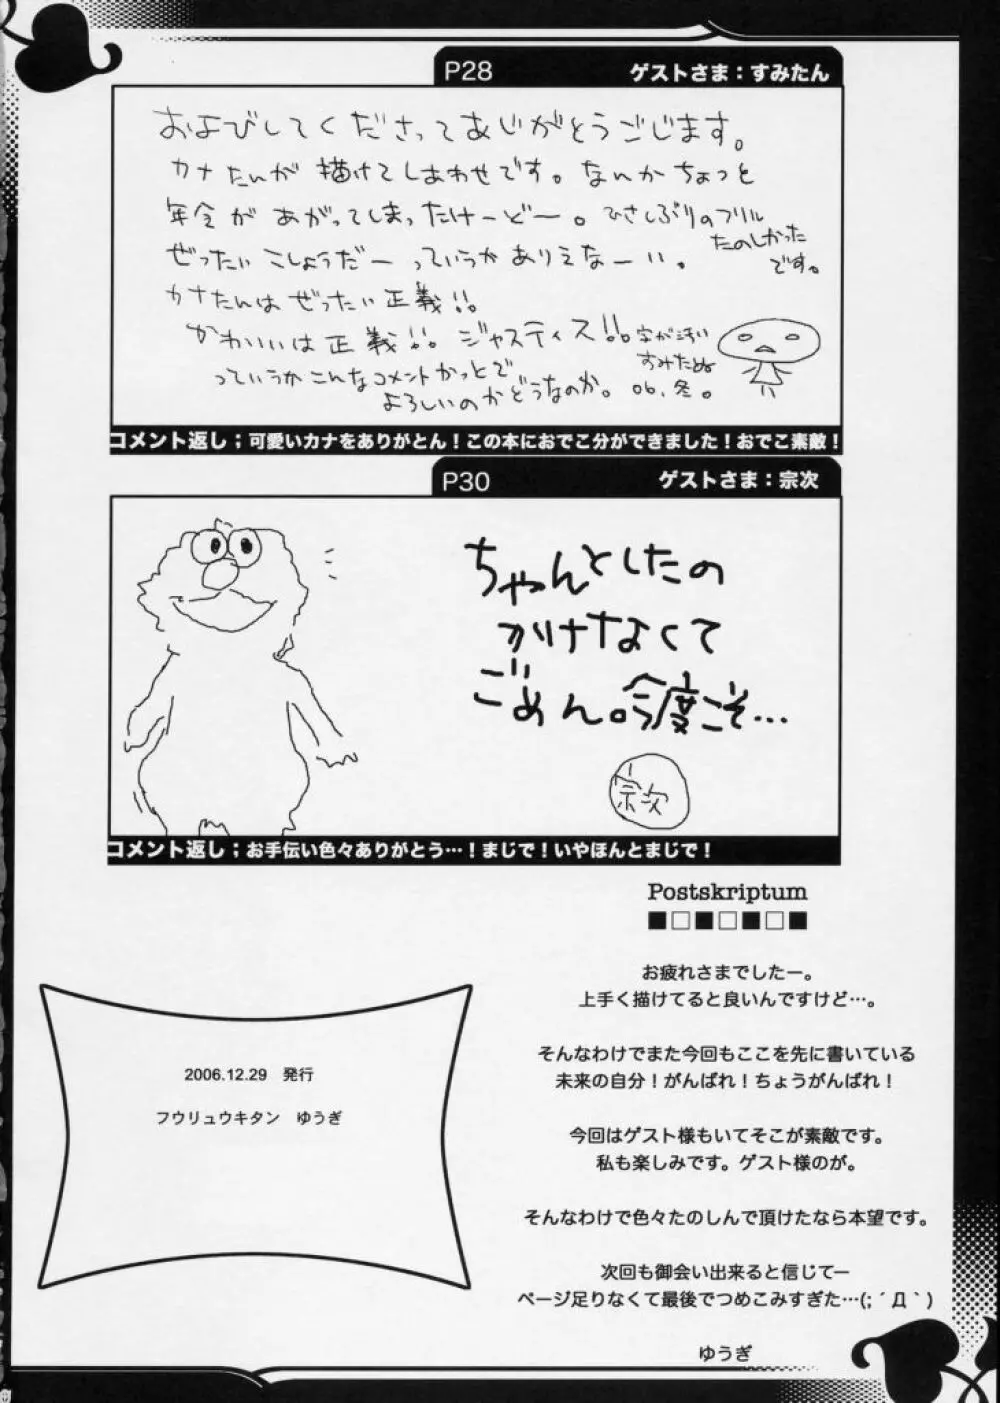 P28
ゲストさま：すみたん
およびしてくださってありがとうごじます。
カナたんが描けてしあわせです。なんかちょっと
年令があがってしまったけーどー。ひさしぶりのフリル
たのしかった
です。
ぜったいこしょうだーっていうかありえなーい。
カナたんはぜったい正義!!
かわいいは正義!! ジャスティス!!。字が汚い
すみたぬ
っていうかこんなコメントかっとで
よろしいのかどうなのか。06.冬。
コメント返し；可愛いカナをありがとん！この本におでこ分ができました！おでこ素敵！
P30
ゲストさま：宗次
ちゃんとしたの
かけなくて
ごめん。今度こそ…
宗次
コメント返し；お手伝い色々ありがとう…！まじで！いやほんとまじで！
Postskriptum
お疲れさまでしたー。
上手く描けてると良いんですけど…。
そんなわけでまた今回もここを先に書いている
未来の自分！がんばれ！ちょうがんばれ！
今回はゲスト様もいてそこが素敵です。
私も楽しみです。ゲスト様のが。
そんなわけで色々たのしんで頂けたなら本望です。
次回も御会い出来ると信じてー
ページ足りなくて最後でつめこみすぎた…(;´Д｀)
ゆうぎ
2006.12.29　発行
フウリュウキタン　ゆうぎ